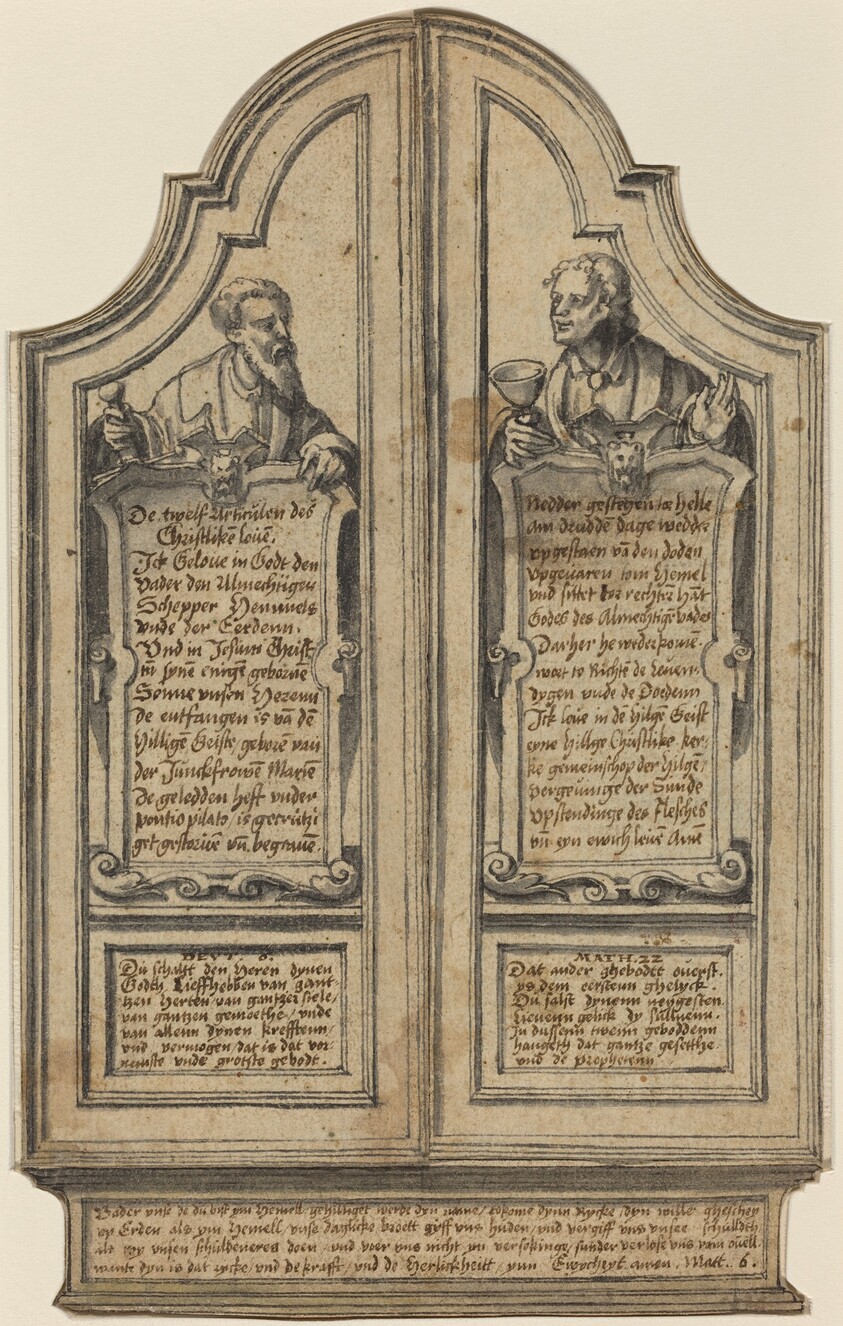 De twelf Articulen des
Christliken loue.
Ick Geloue in Godt den
Vader den Almechtigen
Schepper Hemmels
vnde der Eerdenn.
Vnd in Jesum Christ
um synē enigē gebornē
Sonne vnsen Herenn
de entfangen is vā dē
Hilligē Geiste, geborē van
der Junckfrowē Mariē
De geledden heft vnder
pontio pilato, is gecrützi
get gestoruē vn̄. begrauē.
Nedder gestegen tor helle
am drudden dage wedder
vpgestaen vā den doden
vpgeuaren tom Hemel
vnd sittet tor rechtē hāt
Godes des Almechtigē vades
Dar her he wedderkomē.
wert to Richtē de leuen:
dygen vnde de Doedenn
Ick loue in dē hilgē Geist
eyne hillge Christlike ker:
ke gemeinschop der hilgē,
vergeuinge der Sunde
vpstendinge des flesches
vn̄ eyn ewich leuē Amē
DEVT. 6.
Du schalt den Heren dynen
Godth Lieffhebben van gant
tzen Herten, van gantzer siele,
van gantzen gemoethe, vnde
van allenn dynen krefftenn,
vnd vermogen, dat is dat vor:
nemste vnde grotste gebodt.
MATH. 22
Dat ander ghebodtt ouerst.
ys dem eerstenn ghelyck.
Du salst dynenn neygesten
Lieuenn gelick dy sülluenn.
In dussenn twenn geboddenn
hangeth dat gantze gesettze
vnd de prophetenn
Vader vnse de du bist ym Hemell, gehilliget werde dyn name, tokome dynn Rycke, dyn wille gheschey
vp Erden als ym Hemell, vnse daglicke broett gyff vns hüden, vnd vergiff vns vnsee schülldth
als wy vnsen schüldeneres doen, vnd voer vns nicht yn versokinge, sunder verlose vns vam ouell.
wante dyn is dat rycke, vnd de krafft, vnd de Herlickheitt, ynn Ewycheyt amen. Matt. 6.